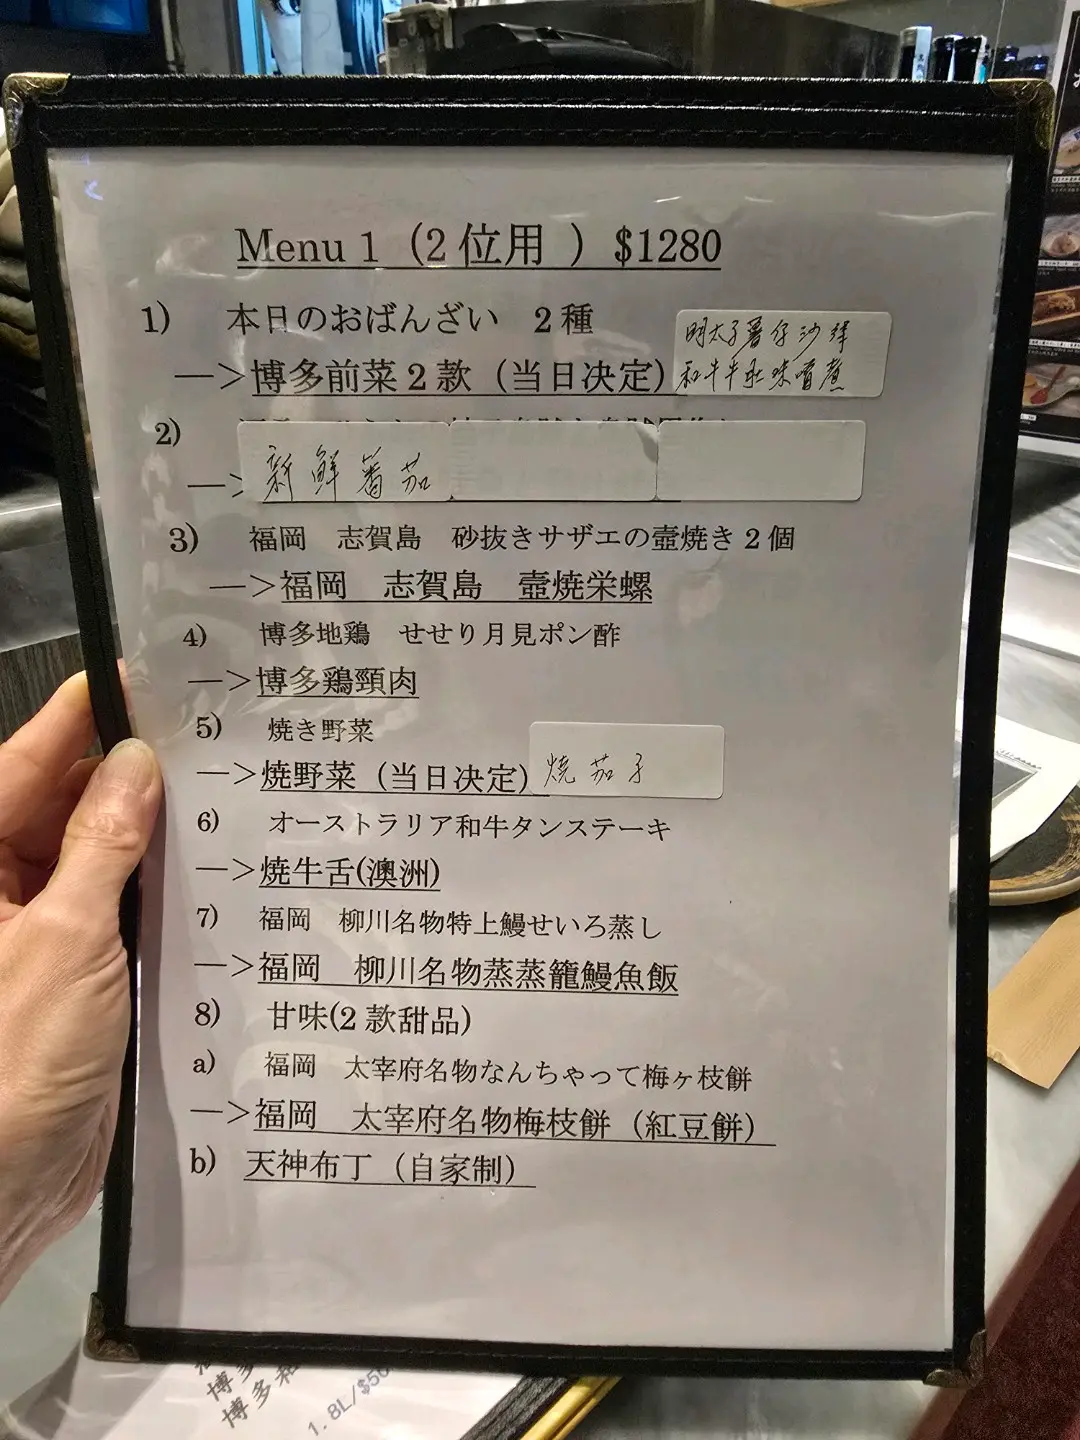 Menu 1（2 位用 ）$1280
1) 本日のおばんざい 2 種
—>博多前菜 2 款（当日決定）
明太子薯仔沙律
和牛牛肚味噌煮
2)
—>新鮮蕃茄
3) 福岡 志賀島 砂抜きサザエの壺焼き 2 個
—>福岡 志賀島 壺焼栄螺
4) 博多地鶏 せせり月見ポン酢
—>博多鶏頸肉
5) 焼き野菜
—>焼野菜（当日決定）焼茄子
6) オーストラリア和牛タンステーキ
—>焼牛舌(澳洲)
7) 福岡 柳川名物特上鰻せいろ蒸し
—>福岡 柳川名物蒸蒸籠鰻魚飯
8) 甘味(2 款甜品)
a) 福岡 太宰府名物なんちゃって梅ヶ枝餅
—>福岡 太宰府名物梅枝餅（紅豆餅）
b) 天神布丁（自家制）
博多
博多和
1.8L/$50